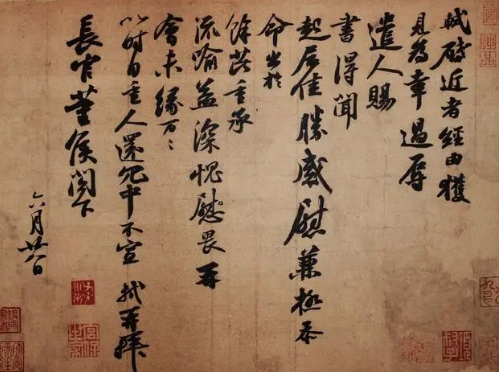 軾啓近者經由獲
見為幸過辱
遣人賜
書得聞
起居佳勝感慰兼極忝
命出於
餘芘重承
流喻益深愧慰畏再
會未緣万〻
以时自重人還冗中不宣 軾再拜
長官董侯閣下
六月廿八日